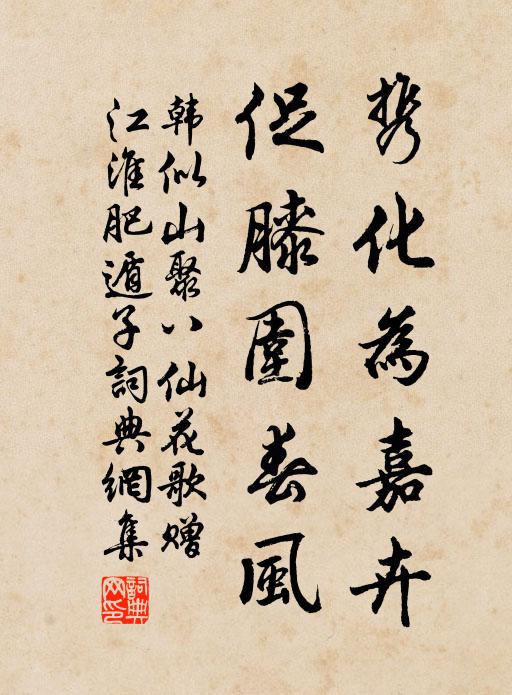 携化為嘉卉
促膝圍春風
韩似山聚八仙花歌赠
江淮肥遁子詞典網集
詞典網印